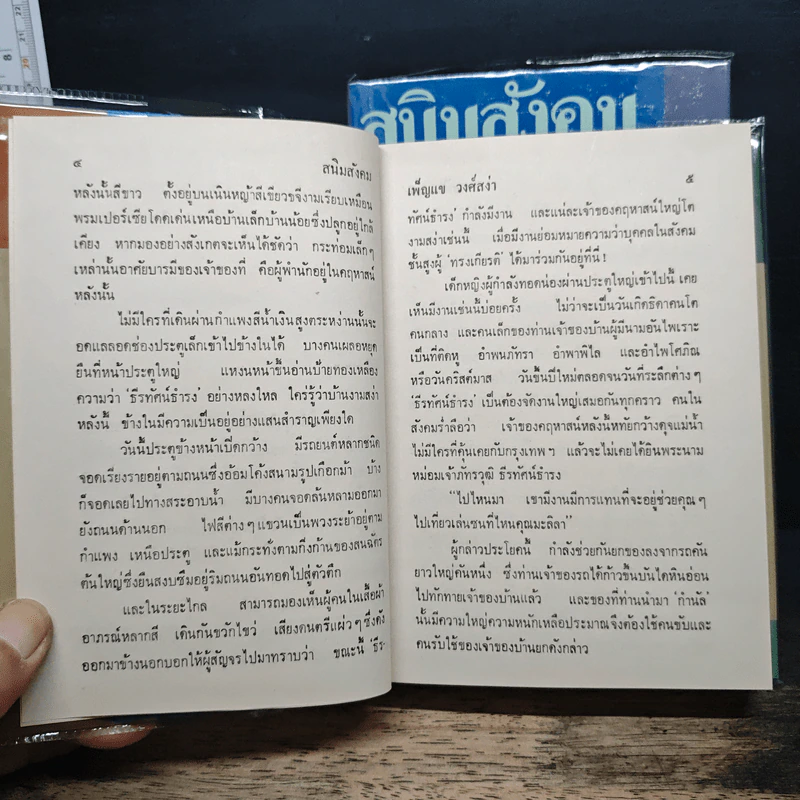 สนิมสังคม
๔
สนิมสังคม
หลังนั้นสีขาว ตั้งอยู่บนเนินหญ้าสีเขียวขจีงามเรียบเหมือน
พรมเปอร์เซียโดดเด่นเหนือบ้านเล็กบ้านน้อยซึ่งปลูกอยู่ใกล้
เคียง หากมองอย่างสังเกตจะเห็นได้ชัดว่า กระท่อมเล็กๆ
เหล่านั้นอาศัยบารมีของเจ้าของที่ คือผู้พำนักอยู่ในคฤหาสน์
หลังนั้น
ไม่มีใครที่เดินผ่านกำแพงสีน้ำเงินสูงตระหง่านนั้นจะ
อดแลลอดช่องประตูเล็กเข้าไปข้างในได้ บางคนเผลอหยุด
ยืนที่หน้าประตูใหญ่ แหงนหน้าขึ้นอ่านป้ายทองเหลือง
ความว่า ‘ธีรทัศน์ธำรง’ อย่างหลงใหล ใคร่รู้ว่าบ้านงามสง่า
หลังนี้ ข้างในมีความเป็นอยู่อย่างแสนสำราญเพียงใด
วันนี้ประตูข้างหน้าเปิดกว้าง มีรถยนต์หลากชนิด
จอดเรียงรายอยู่ตามถนนซึ่งอ้อมโค้งสนามรูปเกือกม้า บ้าง
ก็จอดเลยไปทางสระอาบน้ำ มีบางคนจอดล้นหลามออกมา
ยังถนนด้านนอก ไฟสีต่างๆ แขวนเป็นพวงระย้าอยู่ตาม
กำแพง เหนือประตู และแม้กระทั่งตามกิ่งก้านของสนฉัตร
ต้นใหญ่ซึ่งยืนสงบซึมอยู่ริมถนนอันทอดไปสู่ตัวตึก
และในระยะไกล สามารถมองเห็นผู้คนในเสื้อผ้า
อาภรณ์หลากสี เดินกันขวักไขว่ เสียงดนตรีแผ่วๆ ซึ่งดัง
ออกมาข้างนอกบอกให้ผู้สัญจรไปมาทราบว่า ขณะนี้ ‘ธีร-
เพ็ญแข วงศ์สง่า
๕
ทัศน์ธำรง’ กำลังมีงาน และแน่ละเจ้าของคฤหาสน์ใหญ่โต
งามสง่าเช่นนี้ เมื่อมีงานย่อมหมายความว่าบุคคลในสังคม
ชั้นสูงผู้ ‘ทรงเกียรติ’ ได้มาร่วมกันอยู่ที่นี่ !
เด็กหญิงผู้กำลังทอดน่องผ่านประตูใหญ่เข้าไปนี้ เคย
เห็นมีงานเช่นนี้บ่อยครั้ง ไม่ว่าจะเป็นวันเกิดธิดาคนโต
คนกลาง และคนเล็กของท่านเจ้าของบ้านผู้มีนามอันไพเราะ
เป็นที่ติดหู อำพนภัทรา อำพาพิไล และอำไพโศภิณ
หรือวันคริสต์มาส วันขึ้นปีใหม่ตลอดจนวันที่ระลึกต่างๆ
‘ธีรทัศน์ธำรง’ เป็นต้องจัดงานใหญ่เสมอกันทุกคราว คนใน
สังคมร่ำลือว่า เจ้าของคฤหาสน์หลังนี้หทัยกว้างดุจแม่น้ำ
ไม่มีใครที่คุ้นเคยกับกรุงเทพฯ แล้วจะไม่เคยได้ยินพระนาม
หม่อมเจ้าภัทรวุฒิ ธีรทัศน์ธำรง
“ไปไหนมา เขามีงานมีการแทนที่จะอยู่ช่วยคุณๆ
ไปเที่ยวเล่นซนที่ไหนคุณมะลิลา”
ผู้กล่าวประโยคนี้ กำลังช่วยกันยกของลงจากรถคัน
ยาวใหญ่คันหนึ่ง ซึ่งท่านเจ้าของรถได้ก้าวขึ้นบันไดหินอ่อน
ไปทักทายเจ้าของบ้านแล้ว และของที่ท่านนำมา ‘กำนัล’
นั้นมีความใหญ่ความหนักเหลือประมาณจึงต้องใช้คนขับและ
คนรับใช้ของเจ้าของบ้านยกดังกล่าว